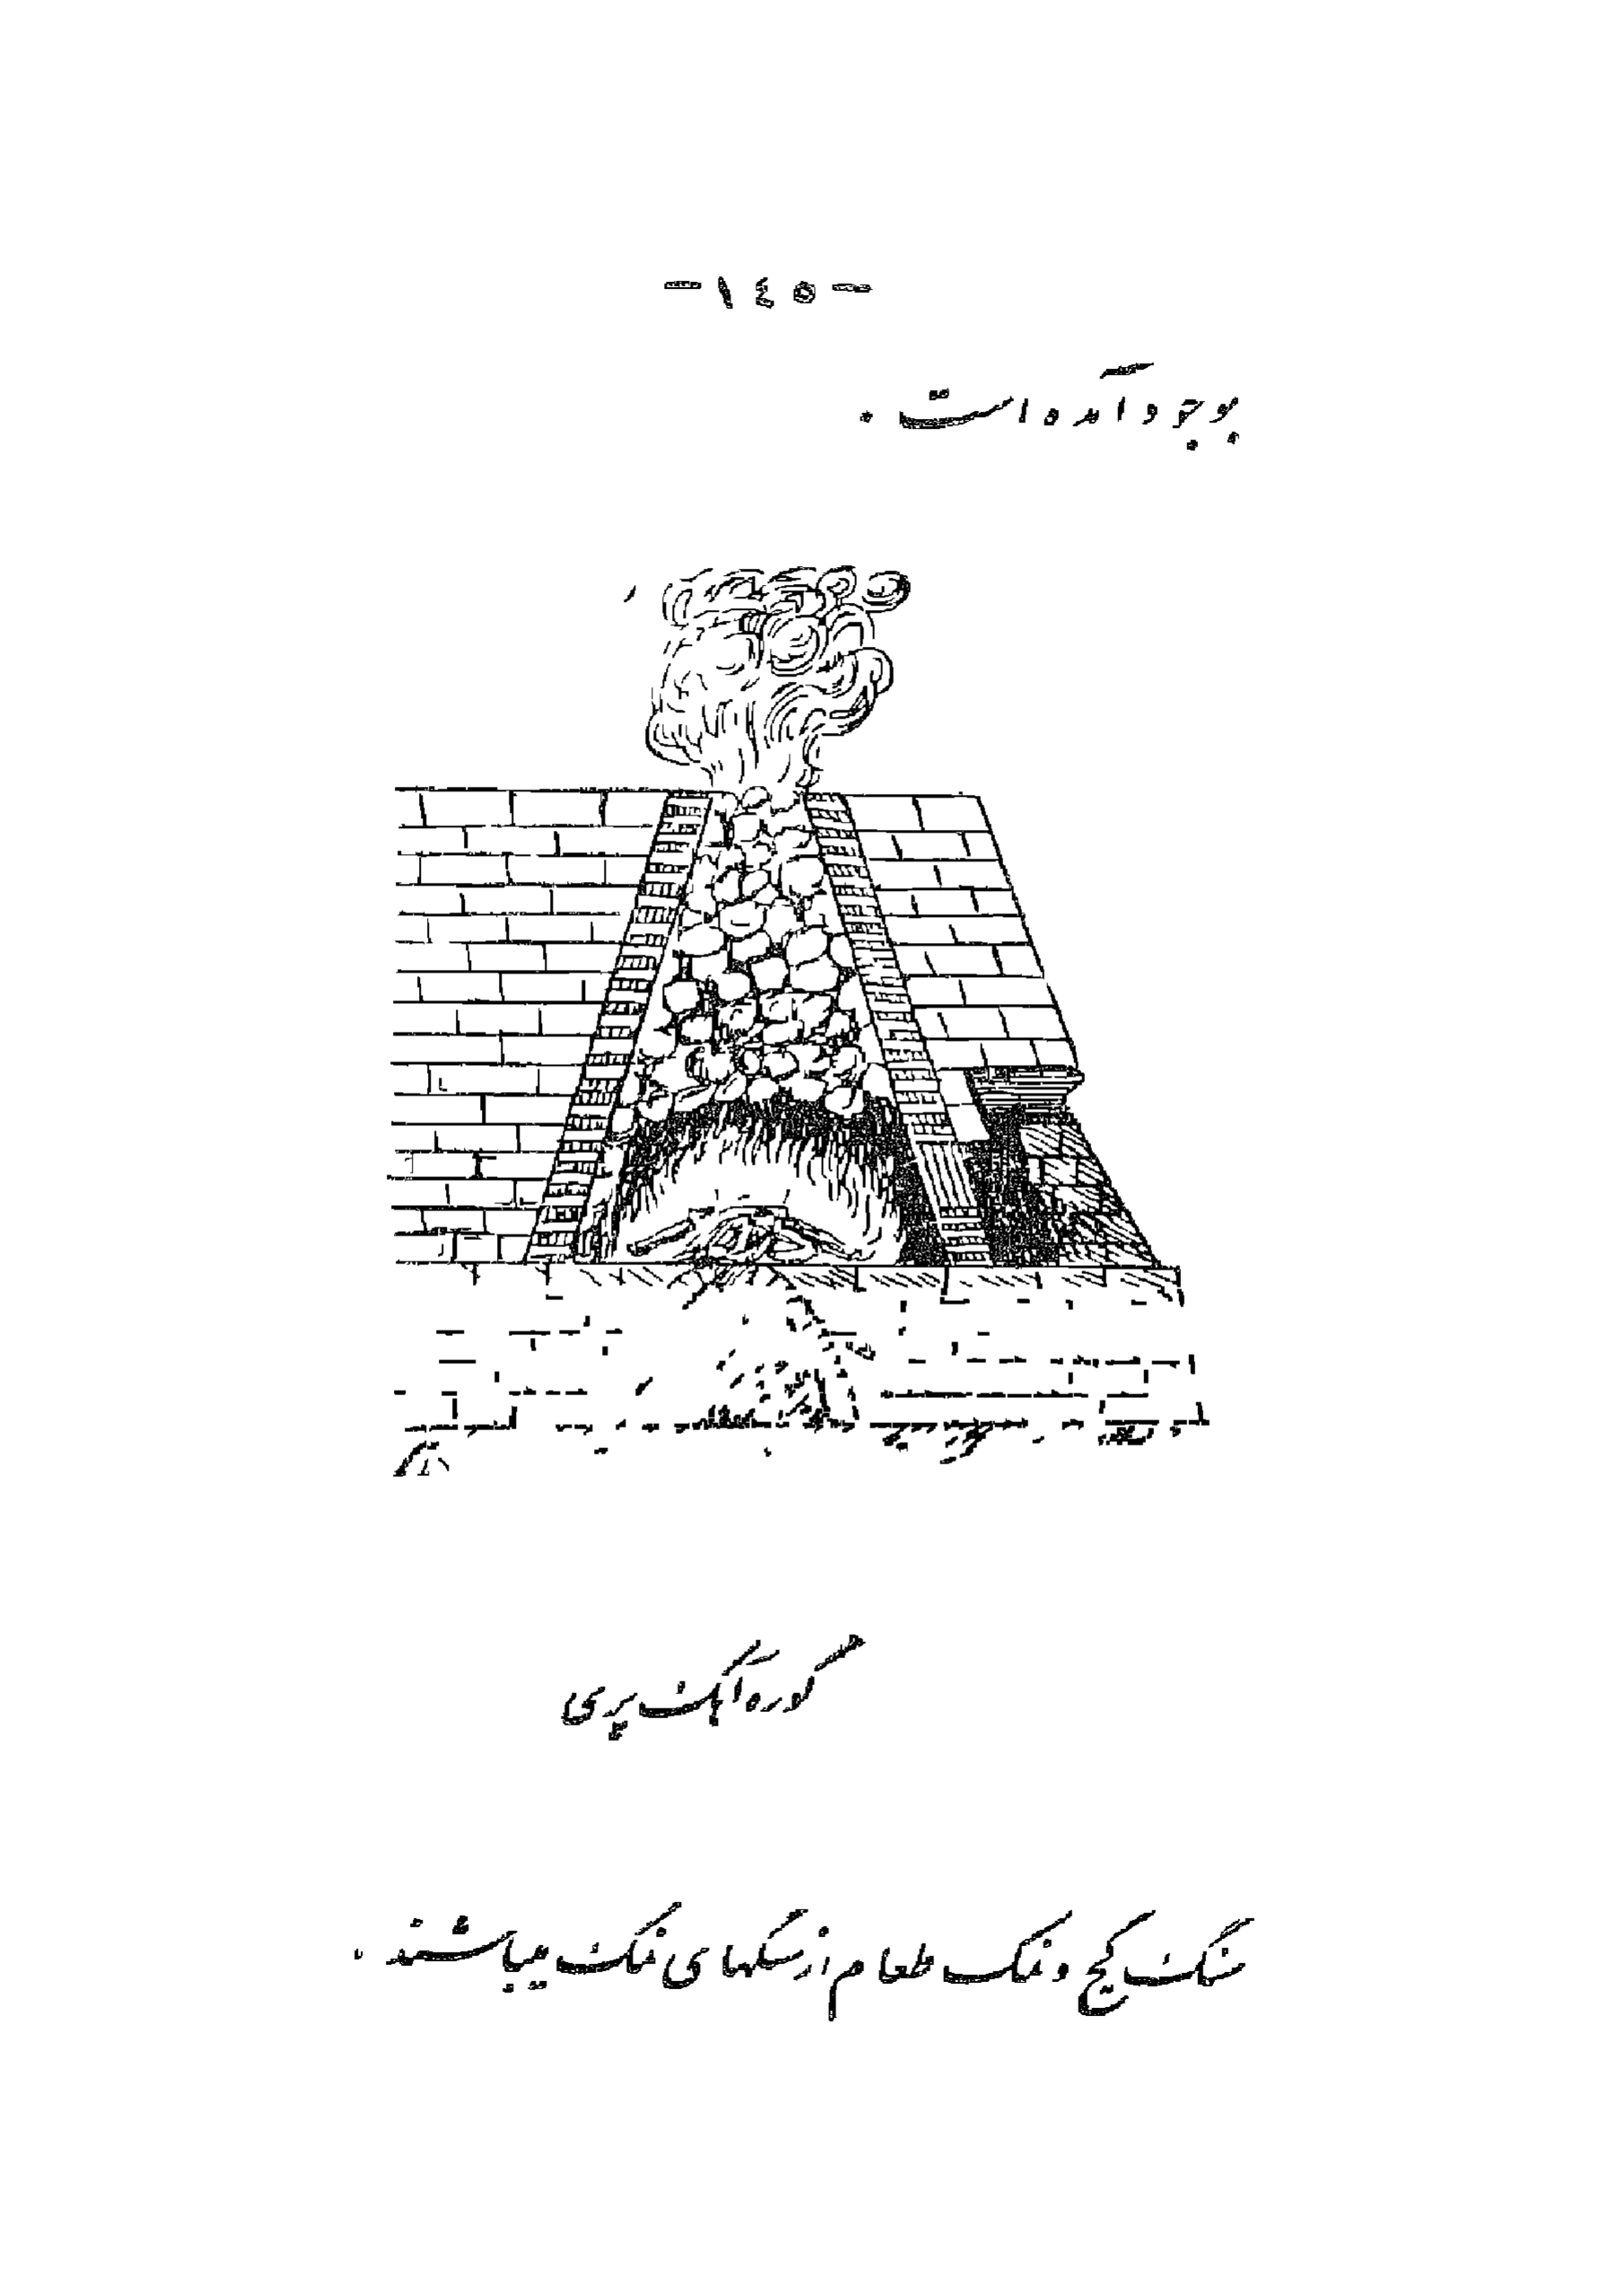 -١٤٥-
بوجود آمده است .
کوره آهک پزی
سنگ گچ و نمک طعام از سنگهای نمک میباشند .